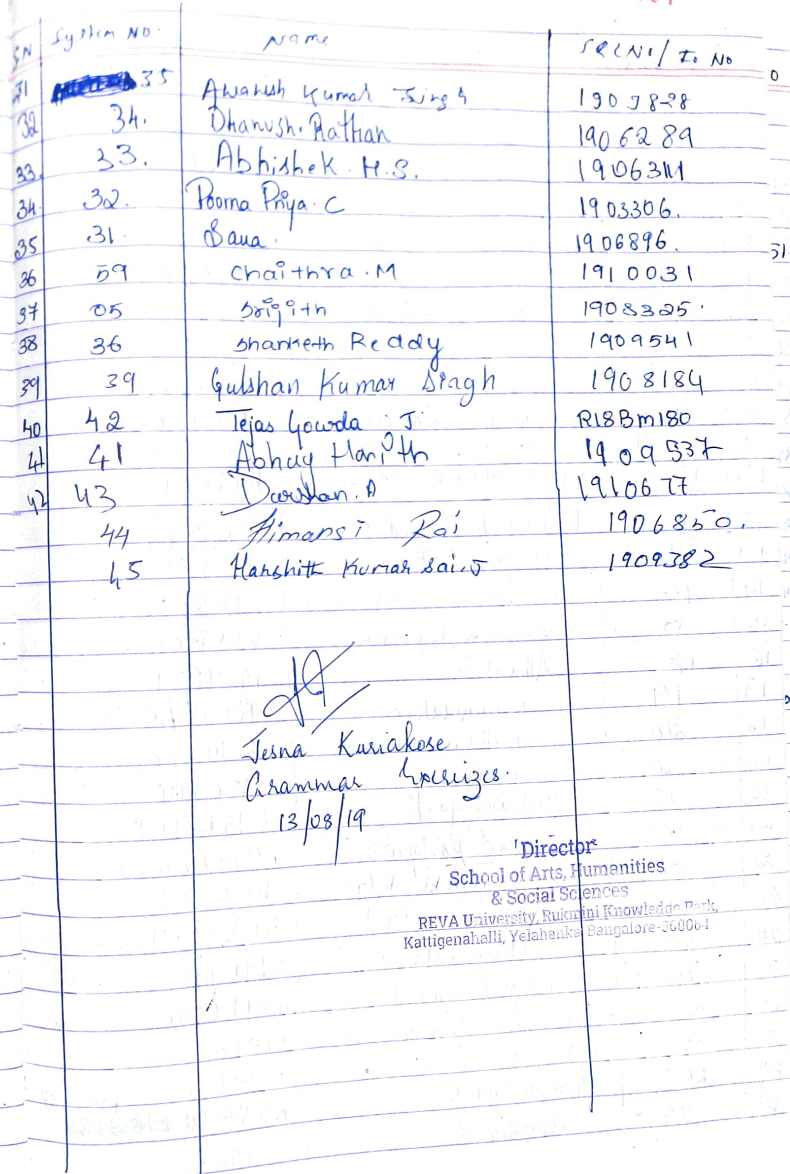 SN System No. Name SRLNo/ ID No
31 35 Awanish Kumar Singh
32 34. Dhanush. Rathan 1906289
33. 33. Abhishek. H.S.
34. 32. Poorna Priya. C 1903306.
35 31. 1906896.
36 59 Chaithra. M 1910031
37 05 Srijith 1908325.
38 36 Shanketh Reddy 1909541
39 39 Gulshan Kumar Singh 1908184
40 42 Tejas Gowda. J R18BM180
41 41 Abhay Harith 1909537
42 43 Darshan. A 1910677
44 Himansi Rai 1906850.
45 Harshith Kumar Sai. J 1909382
Jesna Kuriakose
Grammar Exercizes.
13/08/19
Director
School of Arts, Humanities
& Social Sciences
REVA University, Rukmini Knowledge Park,
Kattigenahalli, Yelahanka Bangalore-560064